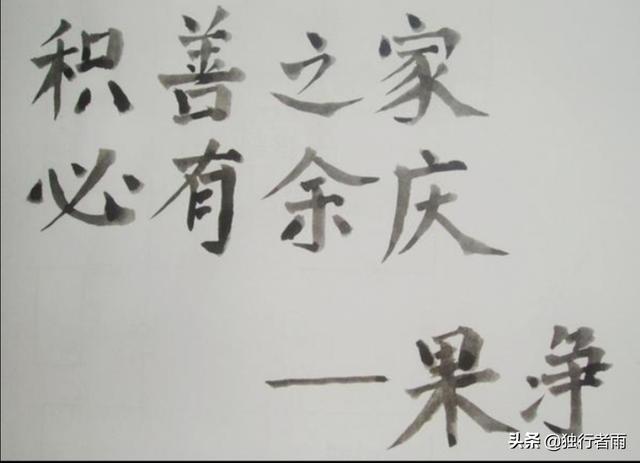 积善之家
必有余庆
—果净
头条 @独行者雨